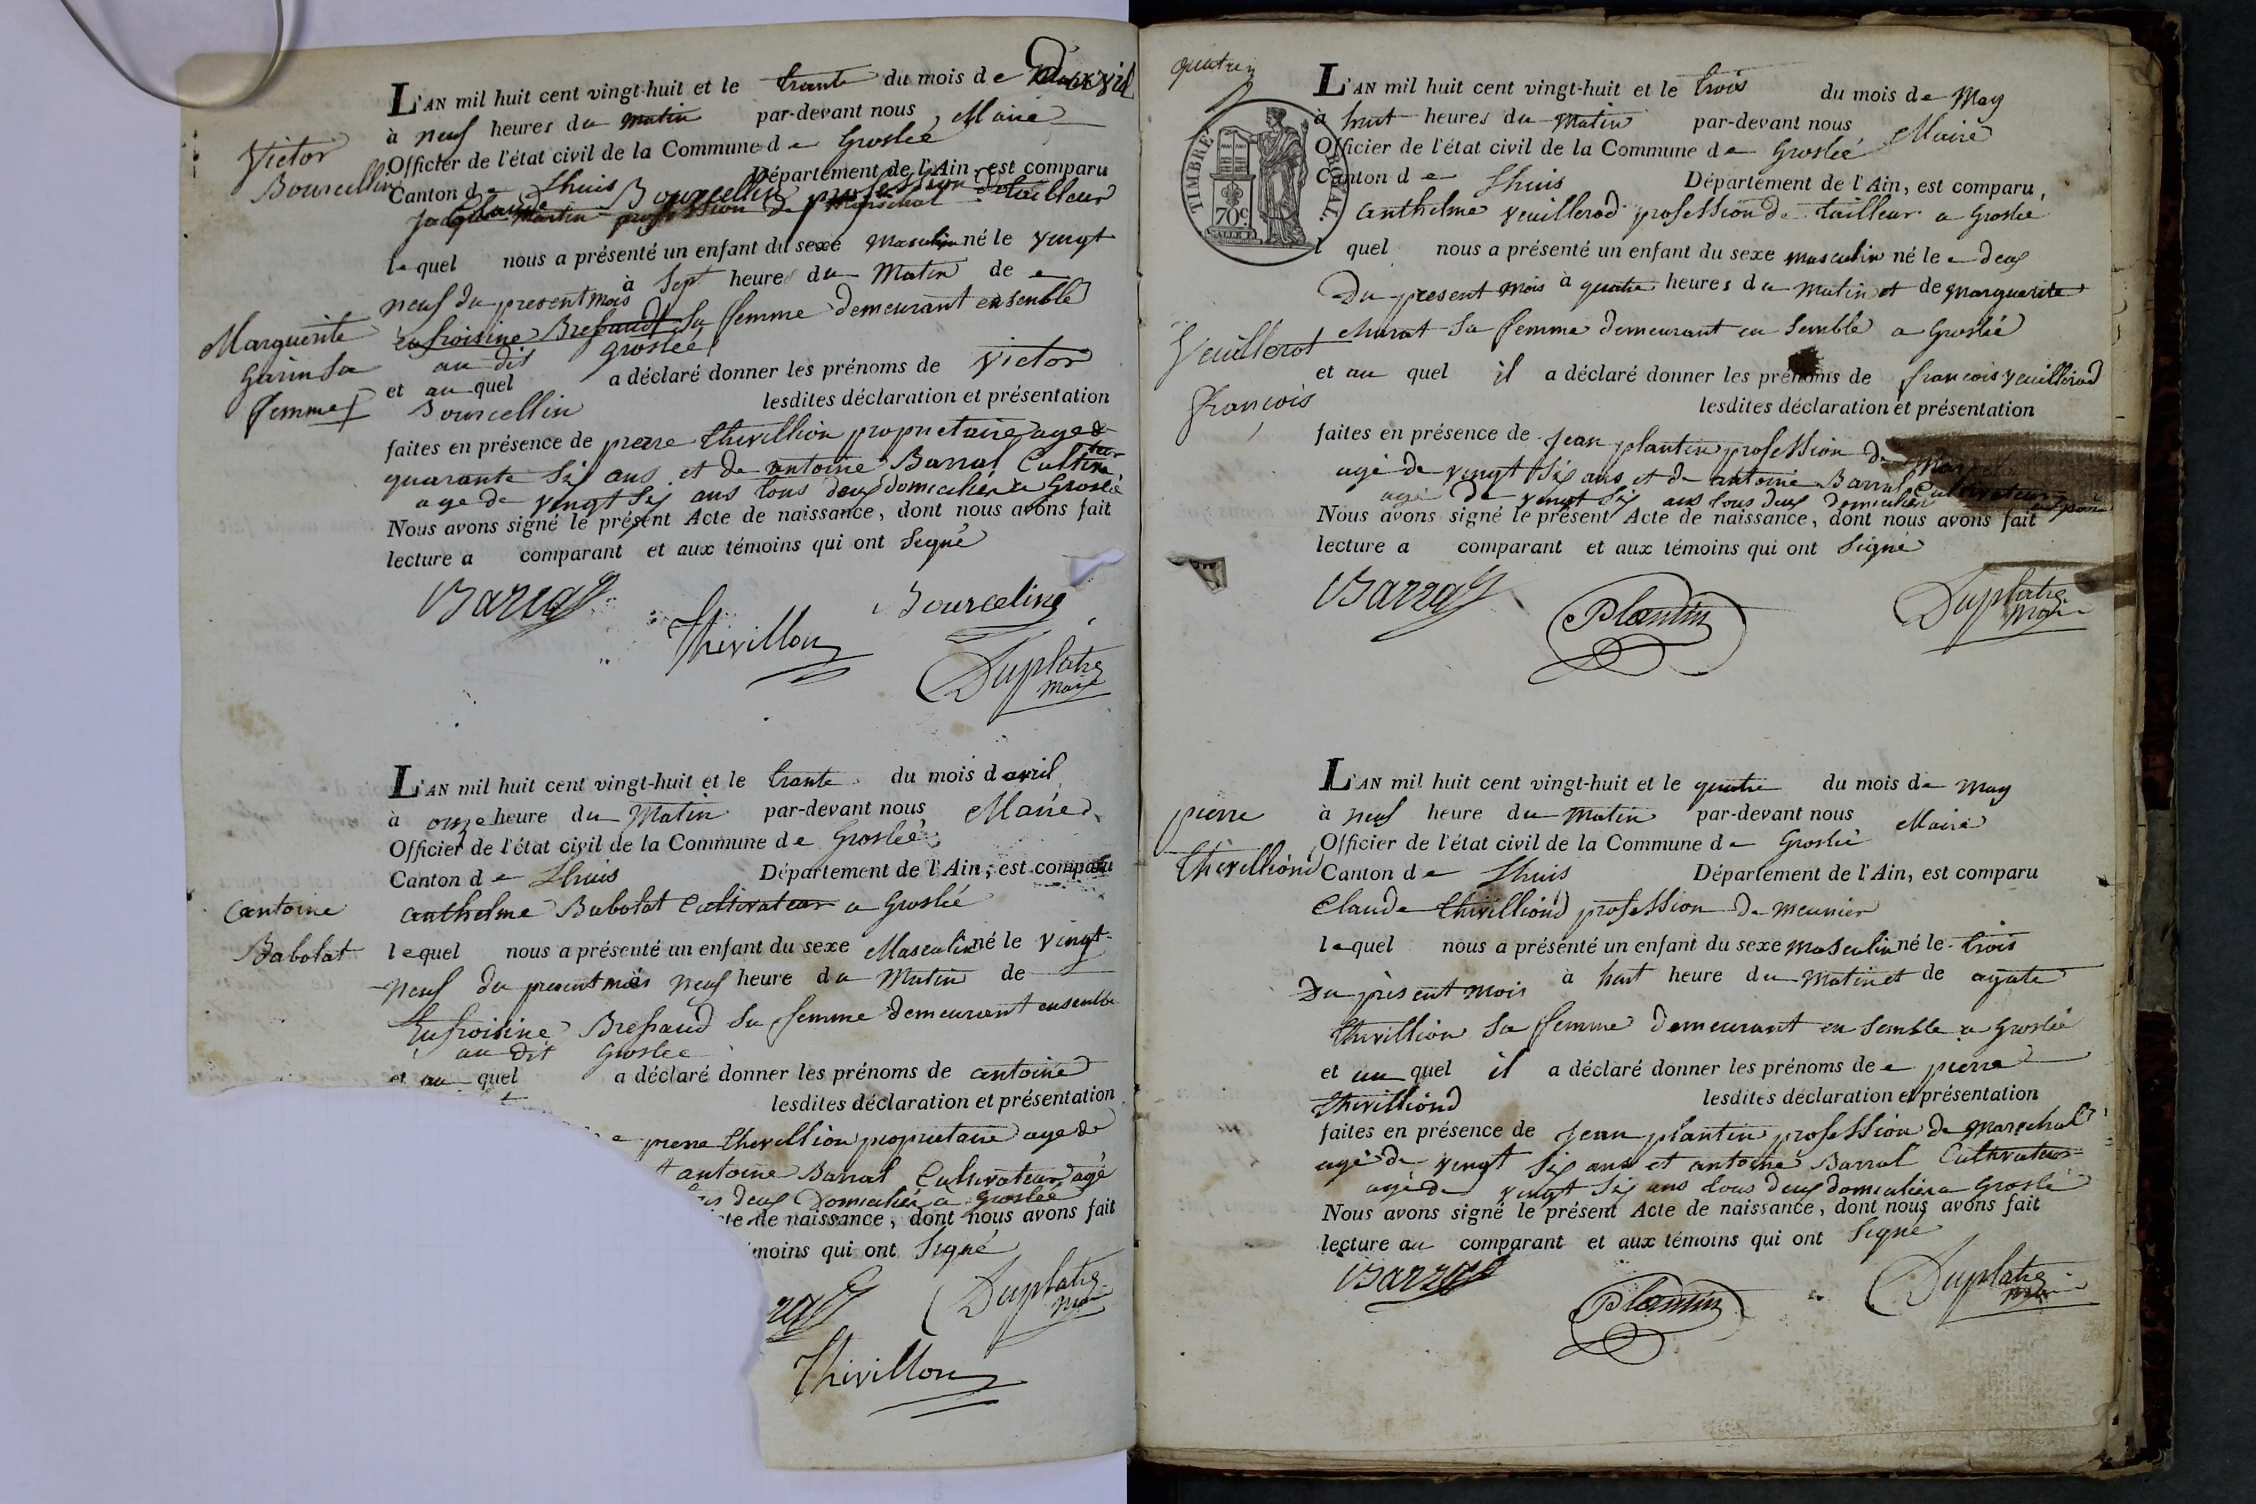 Victor
Bourcellin
Marguerite
Garin sa
femme
L'AN mil huit cent vingt-huit et le trante du mois de avril
à neuf heures du matin par-devant nous Maire
Officier de l'état civil de la Commune de Groslée
Canton de Lhuis Département de l'Ain, est comparu
Claude Bourcellin profession de tailleur
lequel nous a présenté un enfant du sexe masculin né le vingt
neuf du present mois à sept heures du Matin de
eufroisine Bressaud sa femme demeurant ensemble
au dit groslée
et au quel a déclaré donner les prénoms de victor
Bourcellin lesdites déclaration et présentation
faites en présence de pierre thevillion proprietaire age de
quarante six ans et de antoine Barral Cultivateur
age de vingt six ans tous deux domicilies a Groslé
Nous avons signé le présent Acte de naissance, dont nous avons fait
lecture a comparant et aux témoins qui ont Signé
Barral
Thevillon
Bourceling
Duplatre
maire
Antoine
Babolat
L'AN mil huit cent vingt-huit et le trante du mois d avril
à onze heure du Matin par-devant nous Maire
Officier de l'état civil de la Commune de Groslée
Canton de Lhuis Département de l'Ain, est comparu
anthelme Babolat Cultivateur a Groslée
lequel nous a présenté un enfant du sexe Masculin né le vingt
neuf du present mois à neuf heure du Matin de
Eufroisine Bressaud sa femme demeurant ensemble
au dit Groslee
et au quel a déclaré donner les prénoms de antoine
lesdites déclaration et présentation
pierre thevellion proprietaire age de
antoine Barral Cultivateur agé
deux Domicilies a Groslée
de naissance, dont nous avons fait
moins qui ont Signé
Duplatre
maire
Thevillon
quatre
TIMBRE ROYAL
70 c
Veuillerot
François
L'AN mil huit cent vingt-huit et le trois du mois de May
à huit heures du Matin par-devant nous Maire
Officier de l'état civil de la Commune de Groslée
Canton de Lhuis Département de l'Ain, est comparu
anthelme veuillerod profession de tailleur a Groslée
l quel nous a présenté un enfant du sexe masculin né le deux
Du present mois à quatre heures du matin et de marguerite
sa femme demeurant en semble a Groslée
et au quel il a déclaré donner les prénoms de francois veuillerod
lesdites déclaration et présentation
faites en présence de Jean plantin profession de
agé de vingt six ans et de antoine Barral Cultivateur
agé de vingt six ans tous deux domicilies
Nous avons signé le présent Acte de naissance, dont nous avons fait
lecture a comparant et aux témoins qui ont Signé
Barral
Plantin
Duplatre
maire
pierre
Thevelliond
L'AN mil huit cent vingt-huit et le quatre du mois de may
à neuf heure du matin par-devant nous Maire
Officier de l'état civil de la Commune de Groslée
Canton de Lhuis Département de l'Ain, est comparu
Claude thevilliond profession de meunier
lequel nous a présenté un enfant du sexe masculin né le trois
Du présent mois à huit heure du matin et de agate
thevillion sa femme demeurant en semble a Groslée
et au quel il a déclaré donner les prénoms de pierre
thevilliond lesdites déclaration et présentation
faites en présence de Jean plantin profession de marechal
agé de vingt six ans et antoine Barral Cultivateur
agé de vingt six ans tous deux domicilies a Groslé
Nous avons signé le présent Acte de naissance, dont nous avons fait
lecture au comparant et aux témoins qui ont Signé
Barral
Plantin
Duplatre
maire